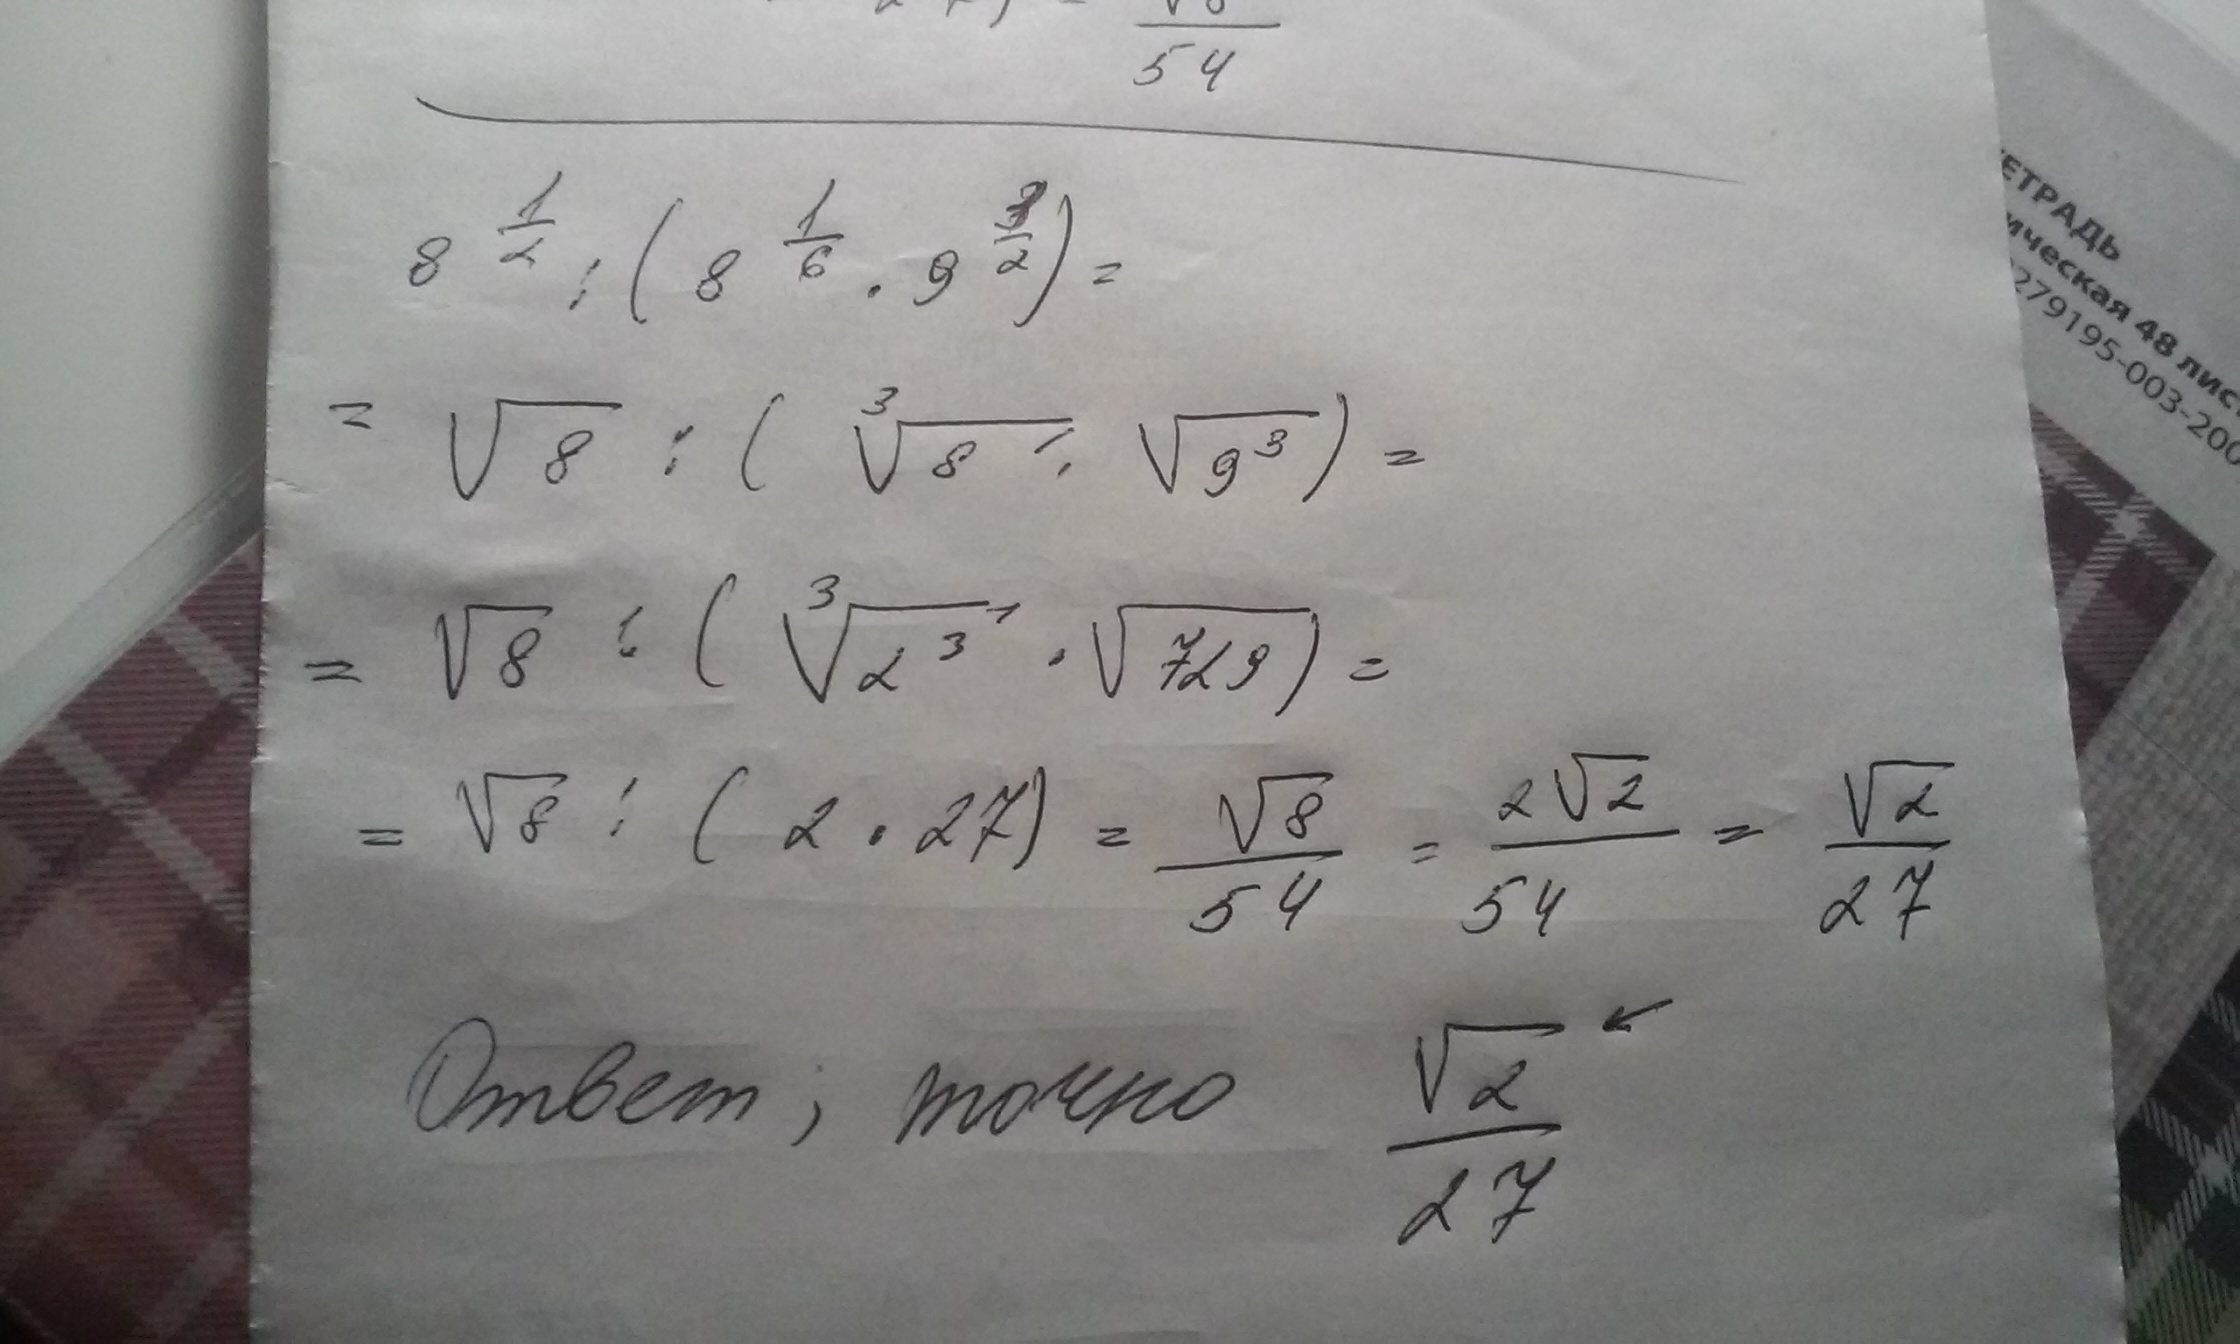 √8/54
8^(1/2) : (8^(1/6) · 9^(3/2)) =
= √8 : (∛8 · √9³) =
= √8 : (∛2³ · √729) =
= √8 : (2 · 27) = √8/54 = 2√2/54 = √2/27
Ответ; точно √2/27
ЕТРАДЬ
ическая 48 лис
279195-003-200